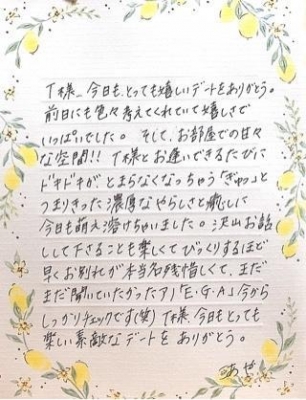 T様、今日も、とっても嬉しいデートをありがとう。
前日にも色々考えてくれていて嬉しさで
いっぱいでした。そして、お部屋での甘々
な空間!! T様とお逢いできるたびに
ドキドキが、とまらなくなっちゃう「ぎゅっ」と
つまりきった濃厚なやらしさと癒しに
今日も萌え溶けちゃいました。沢山お話
しして下さることも楽しくてびっくりするほど
早くお別れが本当名残惜しくて、まだ
まだ聞いていたかったアノ「E・G・A」今から
しっかりチェックです(笑) T様今日もとても
楽しい素敵なデートをありがとう。